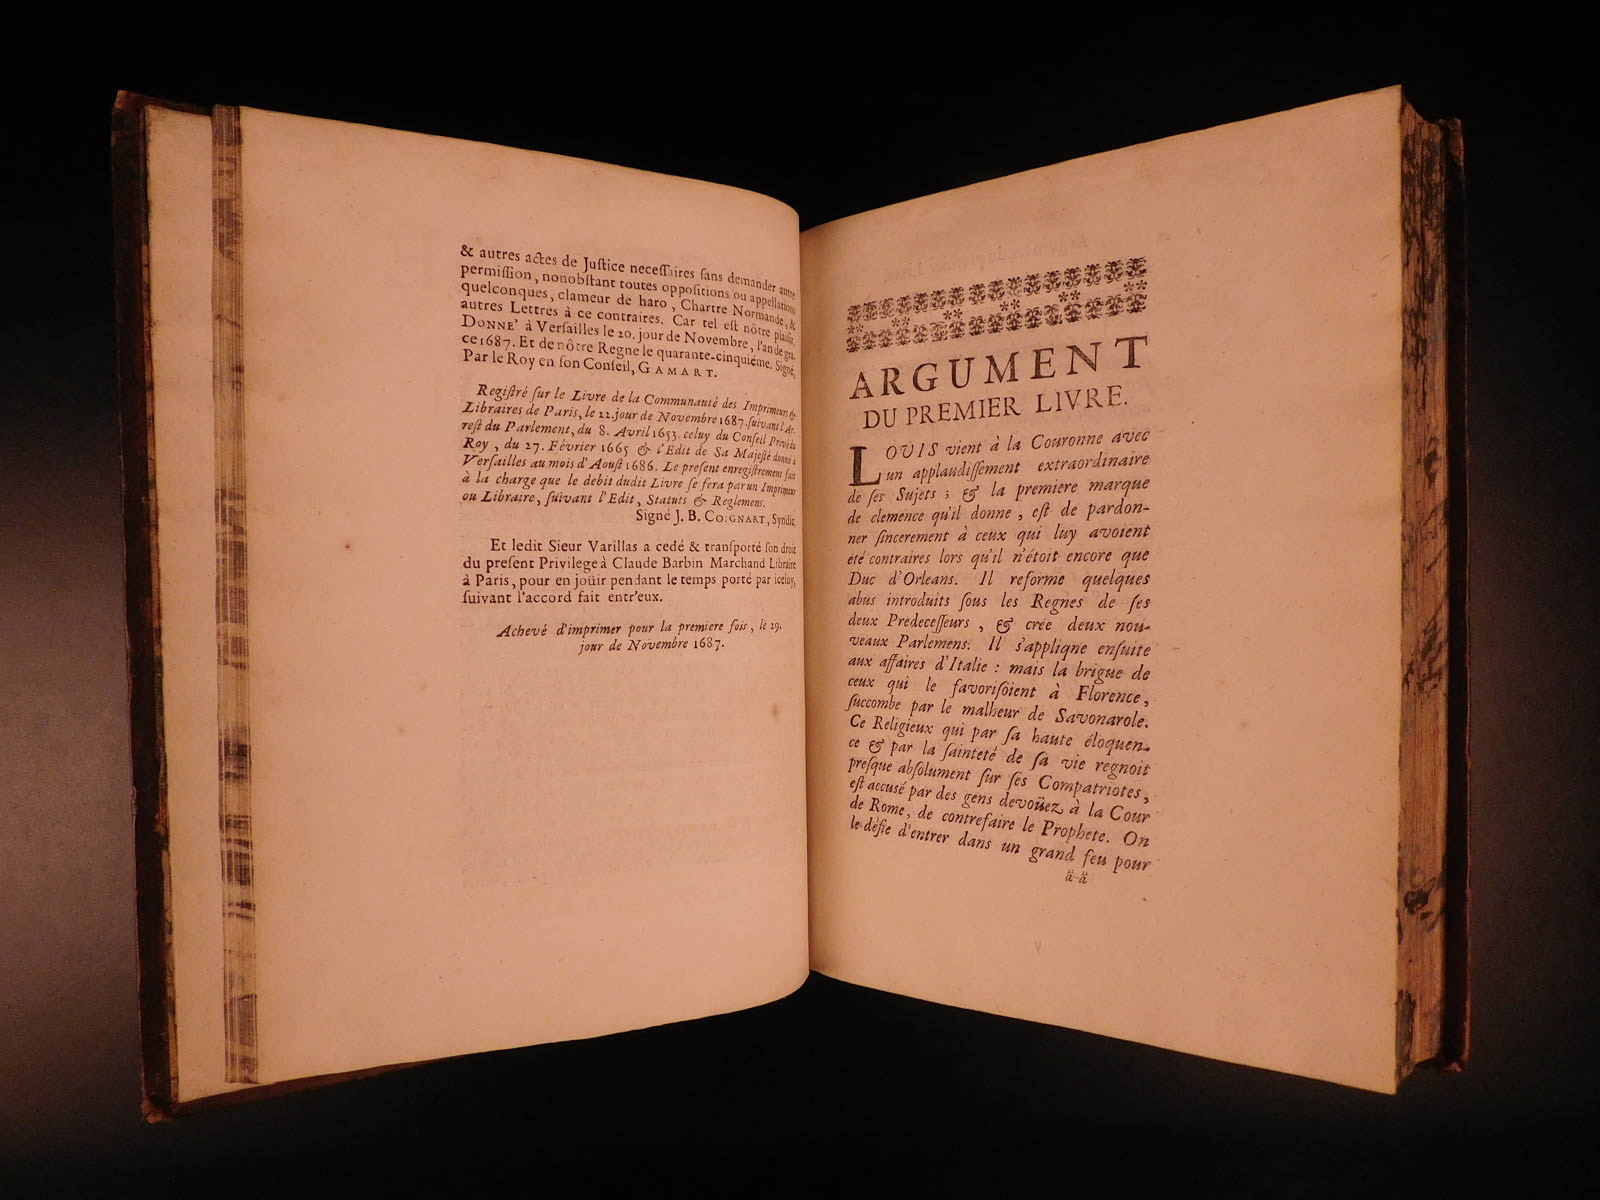 & autres actes de Juſtice neceſſaires ſans demander autre
permiſſion, nonobſtant toutes oppoſitions ou appellations
quelconques, clameur de haro, Chartre Normande, &
autres Lettres à ce contraires. Car tel eſt nôtre plaiſir.
DONNE' à Verſailles le 20. jour de Novembre, l'an de gra-
ce 1687. Et de nôtre Regne le quarante-cinquiéme. Signé,
Par le Roy en ſon Conſeil, GAMART.
Regiſtré ſur le Livre de la Communauté des Imprimeurs &
Libraires de Paris, le 22. jour de Novembre 1687. ſuivant l'Ar-
reſt du Parlement, du 8. Avril 1653. celuy du Conſeil Privé du
Roy, du 27. Février 1665 & l'Edit de Sa Majeſté donné à
Verſailles au mois d'Aouſt 1686. Le preſent enregiſtrement fait
à la charge que le debit dudit Livre ſe fera par un Imprimeur
ou Libraire, ſuivant l'Edit, Statuts & Reglemens.
Signé J. B. COIGNART, Syndic.
Et ledit Sieur Varillas a cedé & tranſporté ſon droit
du preſent Privilege à Claude Barbin Marchand Libraire
à Paris, pour en joüir pendant le temps porté par iceluy,
ſuivant l'accord fait entr'eux.
Achevé d'imprimer pour la premiere fois, le 29.
jour de Novembre 1687.
ARGUMENT
DU PREMIER LIVRE.
LOUIS vient à la Couronne avec
un applaudiſſement extraordinaire
de ſes Sujets; & la premiere marque
de clemence qu'il donne, eſt de pardon-
ner ſincerement à ceux qui luy avoient
été contraires lors qu'il n'étoit encore que
Duc d'Orleans. Il reforme quelques
abus introduits ſous les Regnes de ſes
deux Predeceſſeurs, & crée deux nou-
veaux Parlemens. Il s'applique enſuite
aux affaires d'Italie: mais la brigue de
ceux qui le favoriſoient à Florence,
ſuccombe par le malheur de Savonarole.
Ce Religieux qui par ſa haute éloquen-
ce & par la ſainteté de ſa vie regnoit
preſque abſolument ſur ſes Compatriotes,
eſt accuſé par des gens devoüez à la Cour
de Rome, de contrefaire le Prophete. On
le défie d'entrer dans un grand feu pour
ä ä